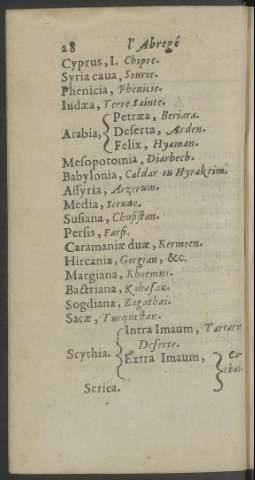 28 l'Abregé
Cyprus, I. Chipre.
Syria caua, Sourie.
Phenicia, Phenicie.
Iudæa, Terre Sainte.
Petræa, Beriara.
Arabia, Deserta, Arden.
Felix, Hyaman.
Mesopotomia, Diarbech.
Babylonia, Caldar ou Hyrakeim.
Assyria, Arzerum.
Media, Seruan.
Susiana, Chusistan.
Persis, Farsi.
Caramaniæ duæ, Kermoen.
Hircania, Gorgian, &c.
Margiana,
Bactriana,
Sogdiana, Zagathai.
Sacæ, Turquestan.
Intra Imaum, Tartarie
Deserte.
Scythia. Extra Imaum, Ca-
thai.
Serica.